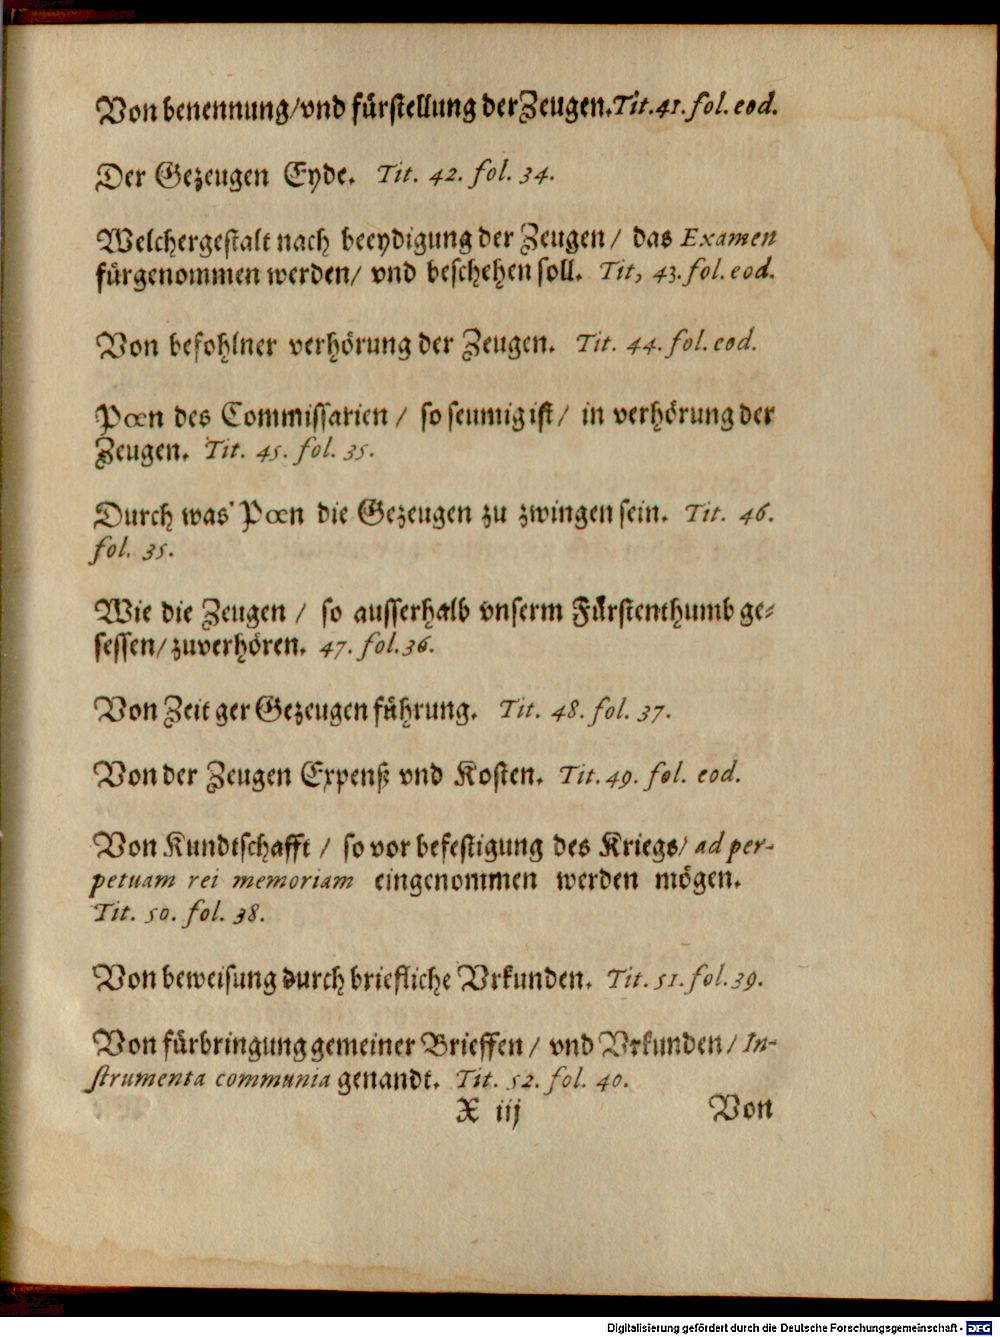 Von benennung/vnd fürstellung der Zeugen. Tit. 41. fol. eod.
Der Gezeugen Eyde. Tit. 42. fol. 34.
Welchergestalt nach beeydigung der Zeugen/ das Examen
fürgenommen werden/ vnd beschehen soll. Tit, 43. fol. eod.
Von befohlner verhörung der Zeugen. Tit. 44. fol. eod.
Pœn des Commissarien / so seumig ist/ in verhörung der
Zeugen. Tit. 45. fol. 35.
Durch was Pœn die Gezeugen zu zwingen sein. Tit. 46.
fol. 35.
Wie die Zeugen / so ausserhalb vnserm Fürstenthumb ge-
sessen/ zuverhören. 47. fol. 36.
Von Zeit ger Gezeugen führung. Tit. 48. fol. 37.
Von der Zeugen Expenß vnd Kosten. Tit. 49. fol. eod.
Von Kundtschafft / so vor befestigung des Kriegs/ ad per-
petuam rei memoriam eingenommen werden mögen.
Tit. 50. fol. 38.
Von beweisung durch briefliche Vrkunden. Tit. 51. fol. 39.
Von fürbringung gemeiner Brieffen / vnd Vrkunden / In-
strumenta communia genandt. Tit. 52. fol. 40.
X iij Von
Digitalisierung gefördert durch die Deutsche Forschungsgemeinschaft - DFG